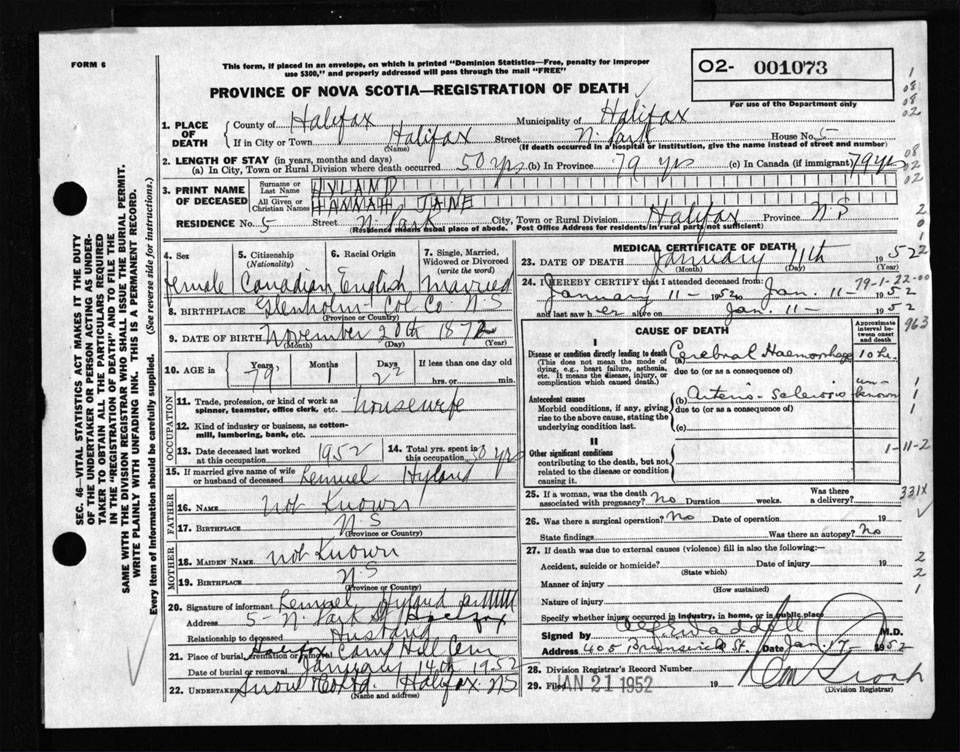 FORM 6
This form, if placed in an envelope, on which is printed "Dominion Statistics—Free, penalty for improper
use $300," and properly addressed will pass through the mail "FREE"
PROVINCE OF NOVA SCOTIA—REGISTRATION OF DEATH
O2- 001073
For use of the Department only
1. PLACE OF DEATH
County of Halifax Municipality of Halifax
If in City or Town Halifax Street N. Park House No. 5
(Name) (If death occurred in a hospital or institution, give the name instead of street and number)
2. LENGTH OF STAY (in years, months and days)
(a) In City, Town or Rural Division where death occurred 50 yrs (b) In Province 79 yrs (c) In Canada (if immigrant) 79 yrs
3. PRINT NAME OF DECEASED
Surname or Last Name HYLAND
All Given or Christian Names HANNAH JANE
RESIDENCE No. 5 Street N. Park City, Town or Rural Division Halifax Province N.S
(Residence means usual place of abode. Post Office Address for residents in rural parts not sufficient)
4. Sex
female
5. Citizenship (Nationality)
Canadian
6. Racial Origin
English
7. Single, Married, Widowed or Divorced (write the word)
married
8. BIRTHPLACE Glenholm Col. Co. N.S
(Province or Country)
9. DATE OF BIRTH November 20th 1872
(Month) (Day) (Year)
10. AGE in Years 79 Months 1 Days 22 If less than one day
hrs. or min.
OCCUPATION
11. Trade, profession, or kind of work as spinner, teamster, office clerk, etc. housewife
12. Kind of industry or business, as cotton-mill, lumbering, bank, etc.
13. Date deceased last worked at this occupation 1952
14. Total yrs. spent in this occupation 50 yrs
15. If married give name of wife or husband of deceased Lemuel Hyland
FATHER
16. NAME not Known
17. BIRTHPLACE N.S
(Province or Country)
MOTHER
18. MAIDEN NAME not Known
19. BIRTHPLACE N.S
(Province or Country)
20. Signature of informant Lemuel Hyland
Address 5- N. Park St Halifax
Relationship to deceased Husband
21. Place of burial, cremation or removal Halifax Camp Hill Cem
Date of burial or removal January 14th 1952
22. UNDERTAKER Snow & Co Ltd. Halifax. NS
(Name and address)
MEDICAL CERTIFICATE OF DEATH
23. DATE OF DEATH January 11th 1952
(Month) (Day) (Year)
24. I HEREBY CERTIFY that I attended deceased from:
79-1-22-00
January 11- 1952 to Jan. 11- 1952
and last saw her alive on Jan 11- 1952
CAUSE OF DEATH
Approximate interval between onset and death
963
I
Disease or condition directly leading to death
(This does not mean the mode of dying, e.g., heart failure, asthenia, etc. It means the disease, injury, or complication which caused death.)
Cerebral Haemorrhage 10 hr.
due to (or as a consequence of)
Antecedent causes
Morbid conditions, if any, giving rise to the above cause, stating the underlying condition last.
(b) Arterio-sclerosis unknown
due to (or as a consequence of)
(c)
II
Other significant conditions
contributing to the death, but not related to the disease or condition causing it.
1-11-2
25. If a woman, was the death associated with pregnancy? No Duration weeks. Was there a delivery?
331X
26. Was there a surgical operation? No Date of operation 19
State findings Was there an autopsy? No
27. If death was due to external causes (violence) fill in also the following:—
Accident, suicide or homicide? Date of injury 19
(State which)
Manner of injury
(How sustained)
Nature of injury
Specify whether injury occurred in industry, in home, or in public place
Signed by M.D.
Address 405 Brunswick St. Date Jan. 1952
28. Division Registrar's Record Number
29. Filed JAN 21 1952 19
(Division Registrar)
SEC. 46—VITAL STATISTICS ACT MAKES IT THE DUTY
OF THE UNDERTAKER OR PERSON ACTING AS UNDER-
TAKER TO OBTAIN ALL THE PARTICULARS REQUIRED
IN THE "REGISTRATION OF DEATH" AND TO FILE THE
SAME WITH THE DIVISION REGISTRAR WHO SHALL ISSUE THE BURIAL PERMIT.
WRITE PLAINLY WITH UNFADING INK. THIS IS A PERMANENT RECORD.
Every item of information should be carefully supplied. (See reverse side for instructions.)